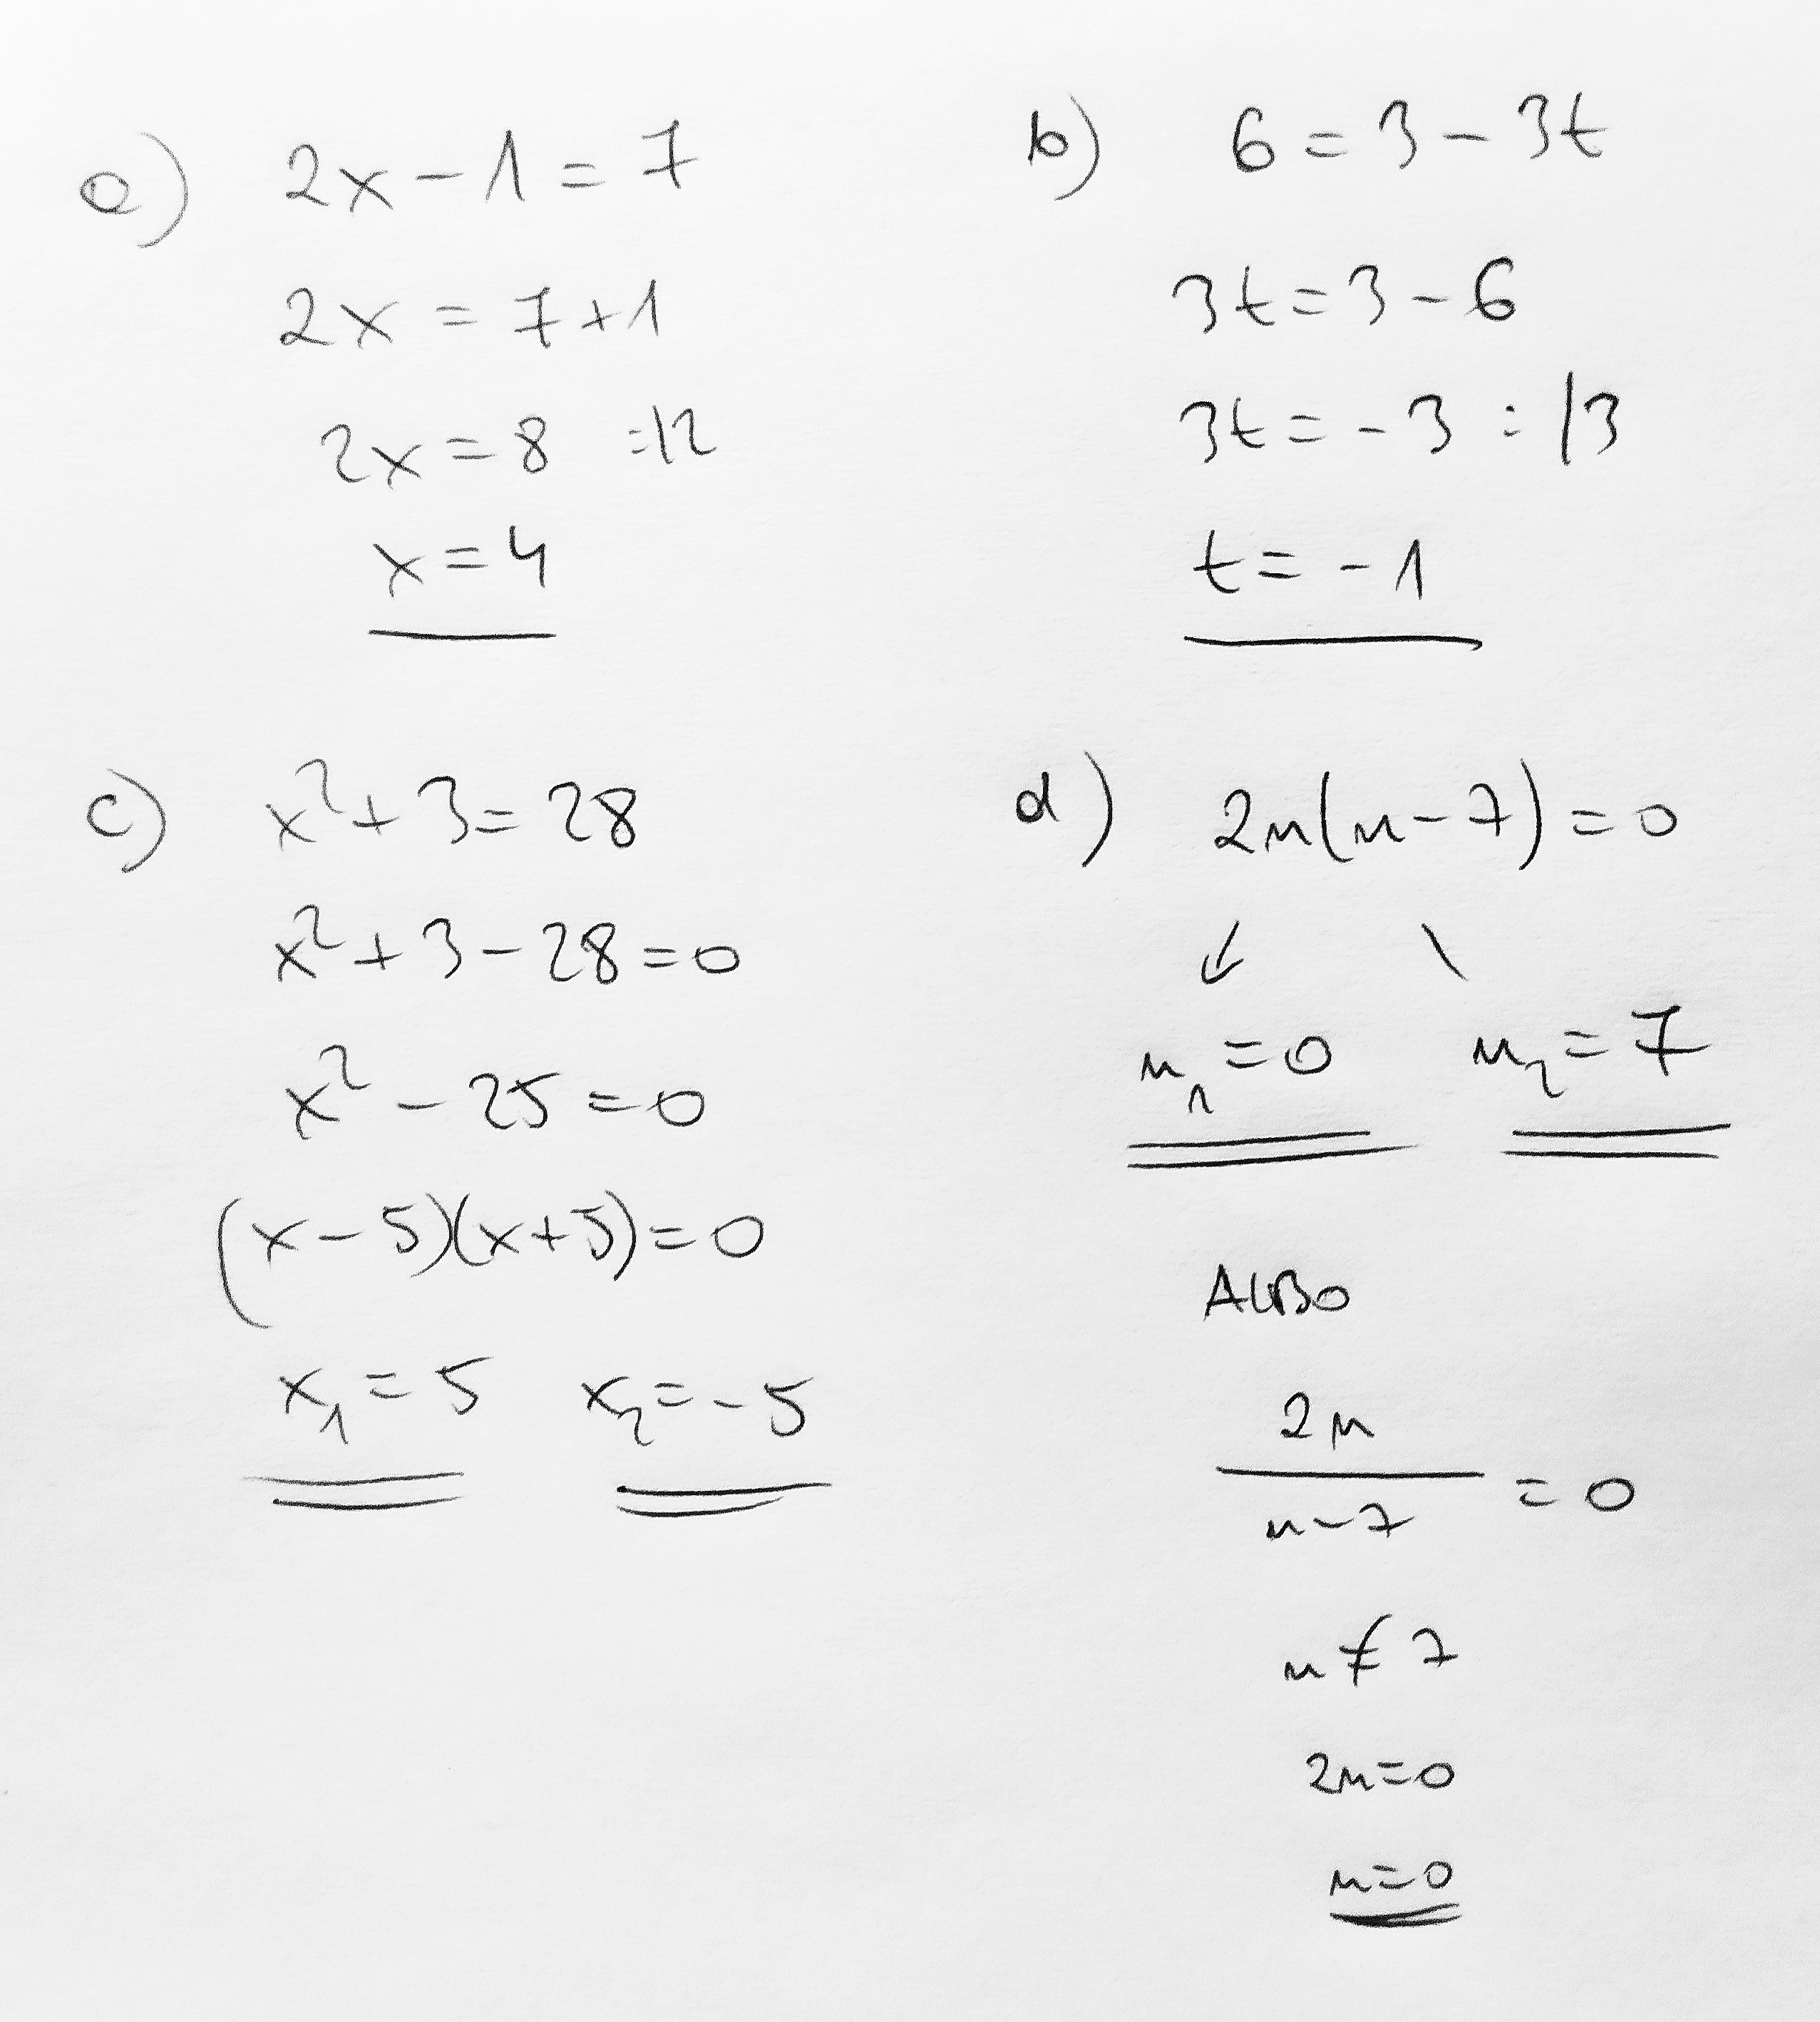 a) 2x - 1 = 7
2x = 7 + 1
2x = 8 :|2
x = 4
b) 6 = 3 - 3t
3t = 3 - 6
3t = -3 :|3
t = -1
c) x² + 3 = 28
x² + 3 - 28 = 0
x² - 25 = 0
(x - 5)(x + 5) = 0
x₁ = 5 x₂ = -5
d) 2n(n - 7) = 0
n₁ = 0 n₂ = 7
ALBO
2n
n - 7 = 0
n ≠ 7
2n = 0
n = 0